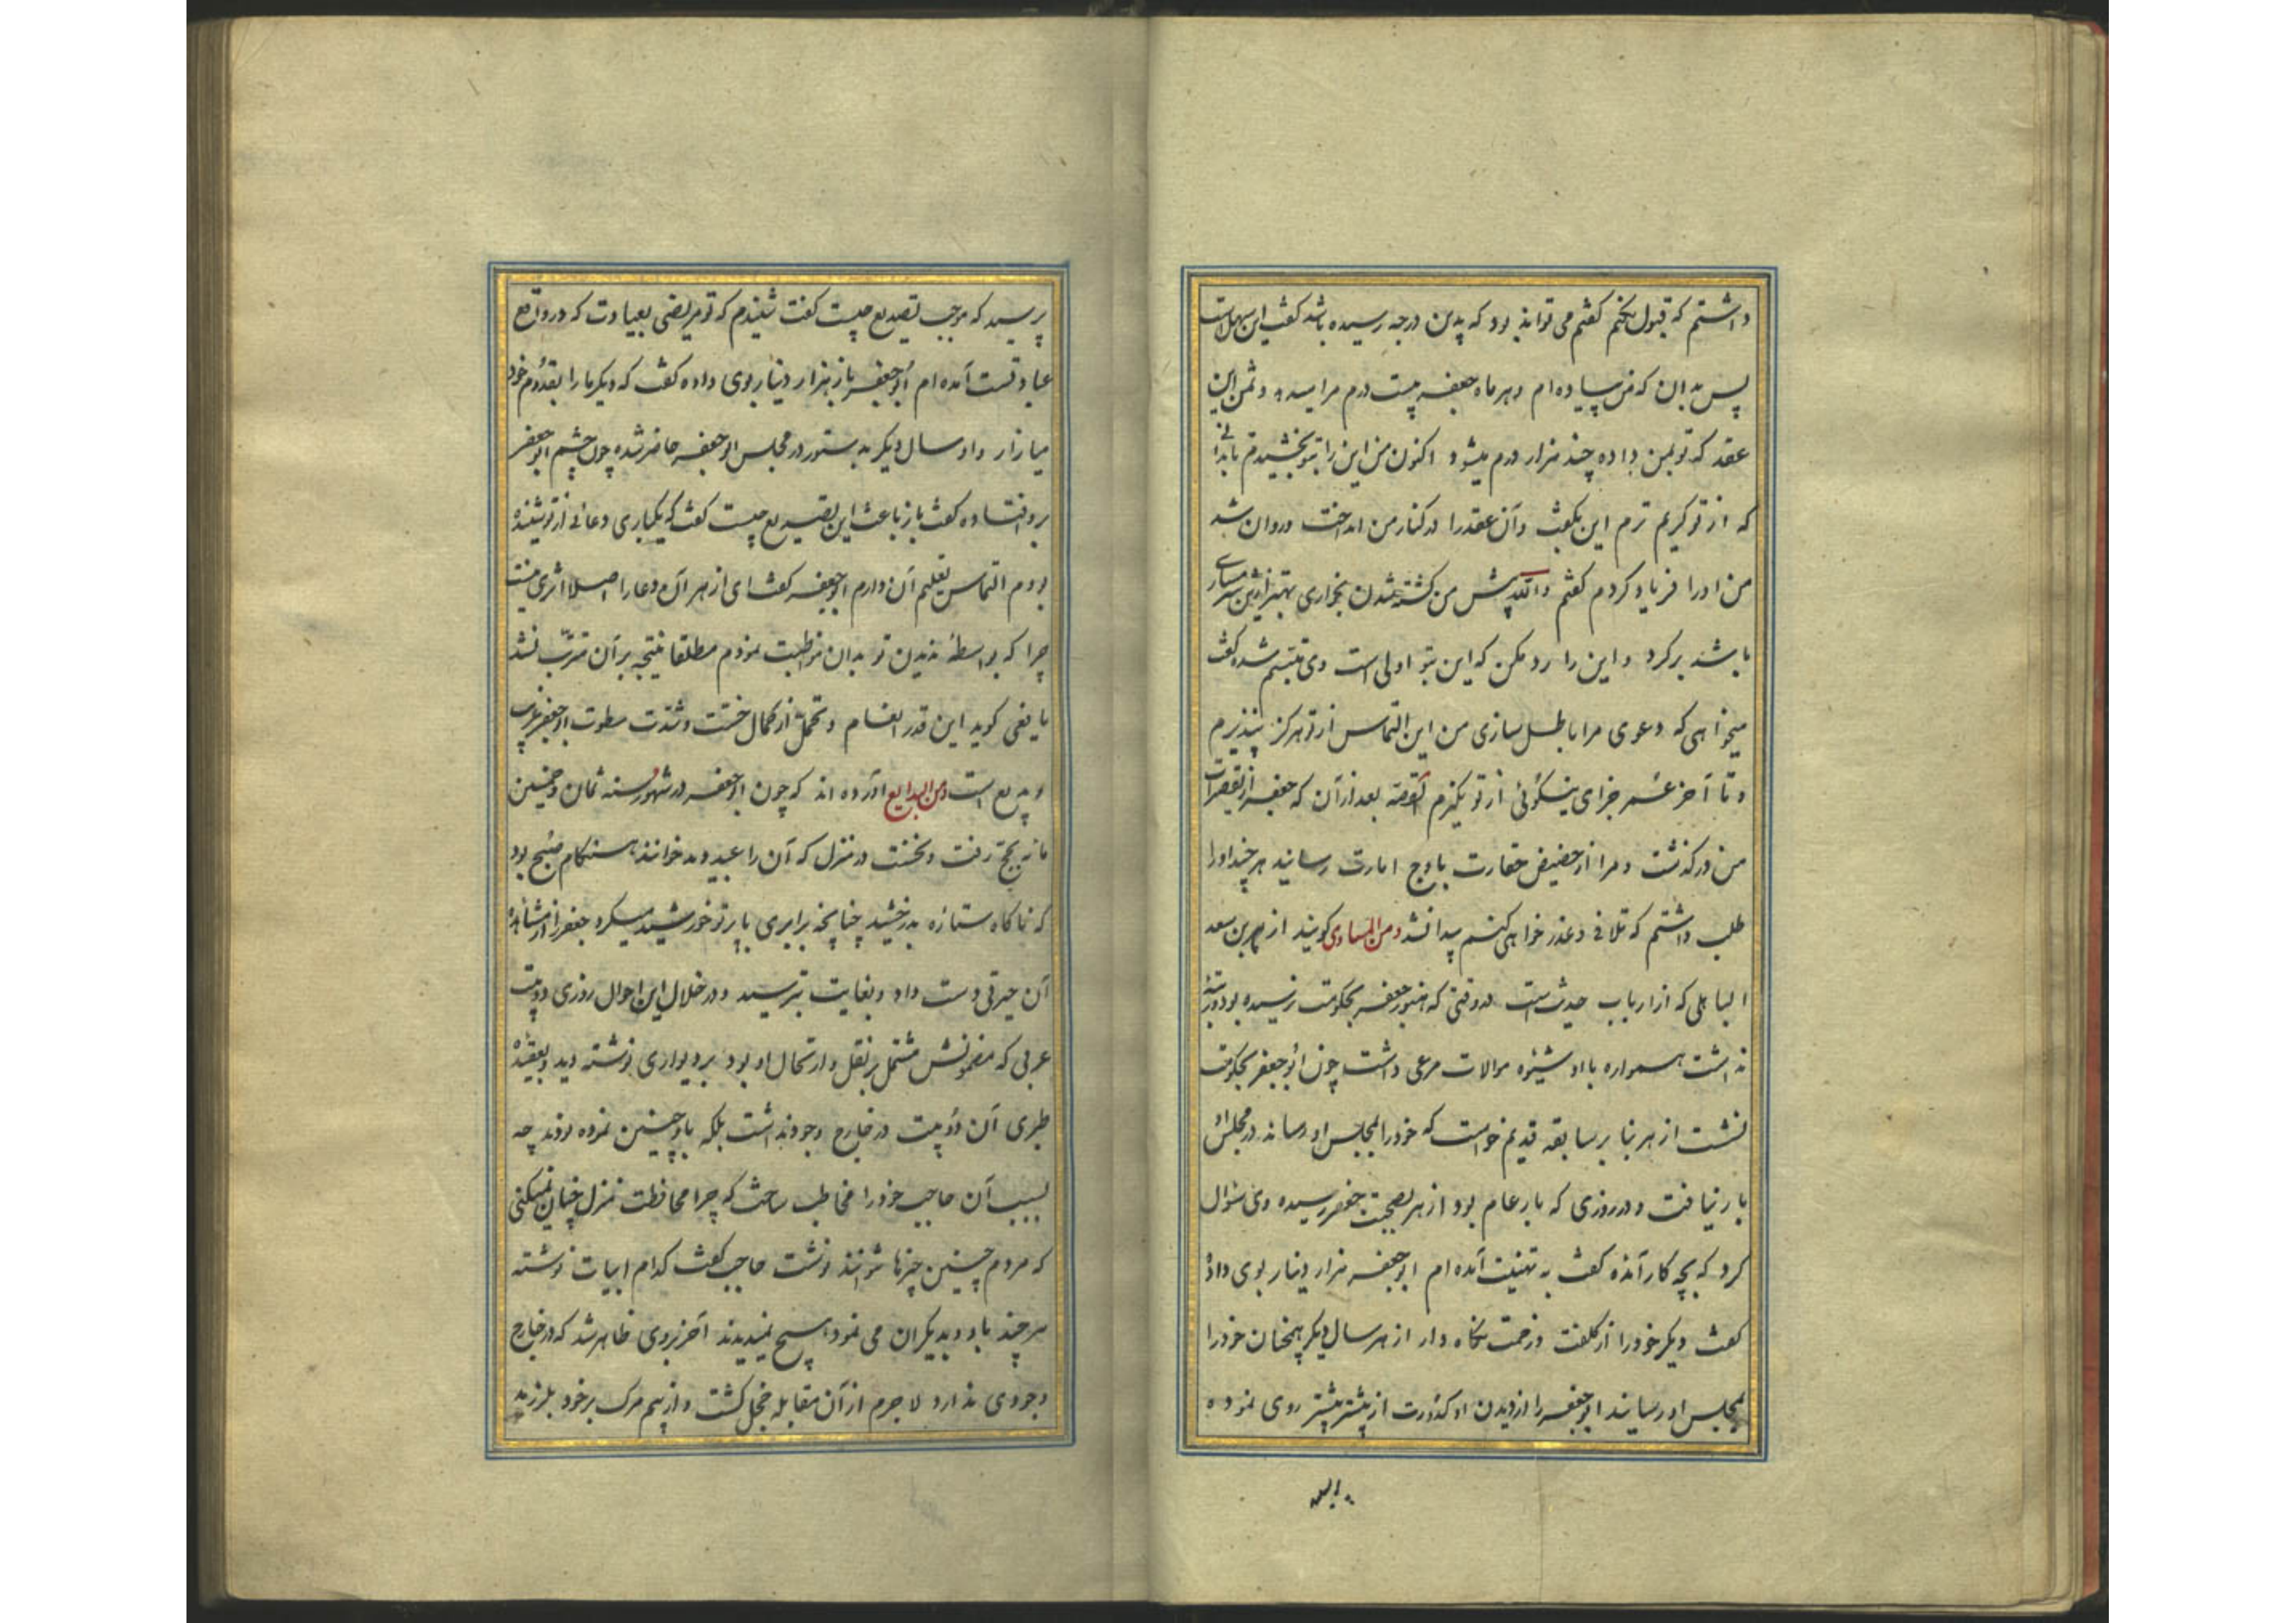 داشتم که قبول نکنم گفتم می تواند بود که بدین درجه رسیده باشد گفت این سهل است
پس بدان که من پیاده ام و هر ماه جعفر بیست درم مرا میدهد و ثمن این
عقد که تو بمن داده چند هزار درم میشود اکنون من این را بتو بخشیدم تا بدانی
که از تو کریم ترم این بگفت و آن عقد را در کنار من انداخت و روان شد
من او را فریاد کردم گفتم والله پیش من کشته شدن بخواری بهتر ازین شرمساری
باشد برگرد و این را رد مکن که این بتو اولی است وی متبسم شده گفت
میخواهی که دعوی مرا باطل سازی من این التماس از تو هرگز نپذیرم
و تا آخر عمر جزای نیکوئی از تو نگیرم القصه بعد از آن که جعفر از تقصیرات
من درگذشت و مرا از حضیض حقارت باوج امارت رسانید هر چند او را
طلب داشتم که تلافی و عذر خواهی کنم پیدا نشد ومن المساوی گویند ازهر بن سعد
الباهلی که از ارباب حدیث است در وقتی که هنوز جعفر بحکومت نرسیده بود و رتبهٔ
نداشت همواره با او شیوه موالات مرعی داشت چون ابو جعفر بحکومت
نشست ازهر بنا بر سابقه قدیم خواست که خود را بمجلس او رساند در مجلس او
بار نیافت و در روزی که بار عام بود ازهر بصحبت جعفر رسیده وی سؤال
کرد که بچه کار آمده گفت به تهنیت آمده ام ابو جعفر هزار دینار بوی داد و
گفت دیگر خود را از کلفت و زحمت نگاه دار ازهر سال دیگر همچنان خود را
بمجلس او رسانید ابو جعفر را از دیدن او کدورت از پیشتر بیشتر روی نموده
پرسید که موجب تصدیع چیست گفت شنیدم که تو مریضی بعیادت که در واقع
عبادتست آمده ام ابو جعفر باز هزار دینار بوی داده گفت که دیگر ما را بقدوم خود
میازار و او سال دیگر بدستور در مجلس ابو جعفر حاضر شده چون چشم ابو جعفر
برو افتاده گفت باز باعث این تصدیع چیست گفت که یکباری دعائی از تو شنیده
بودم التماس تعلیم آن دارم ابو جعفر گفت ای ازهر آن دعا را اصلا اثری نیست
چرا که بواسطهٔ ندیدن تو بدان مواظبت نمودم مطلقا نتیجه بر آن مترتب نشد
یافعی گوید این قدر انعام و تحمل از کمال خست و شدت سطوت ابو جعفر غریب
و بدیع است ومن البدایع آورده اند که چون ابو جعفر در شهور سنه ثمان و خمسین
مائه بحج رفت و نخست در منزل که آن را عبدویه خوانند هنگام صبح بود
که ناگاه ستاره بدرخشید چنانچه برابری با پرتو خورشید میکرد جعفر را از مشاهدهٔ
آن حیرتی دست داد و بغایت بترسید و در خلال این احوال روزی دو بیت
عربی که مضمونش مشتمل بر نقل و ارتحال او بود بر دیواری نوشته دید و بعقیدهٔ
طبری آن دو بیت در خارج وجود نداشت بلکه باو چنین نموده بودند چه
بسبب آن حاجب خود را مخاطب ساخت که چرا محافظت منزل چنان نمیکنی
که مردم چنین چیزها نتوانند نوشت حاجب گفت کدام ابیات نوشته
هر چند باو و بدیگران می نمود هیچ نمیدیدند آخر بروی ظاهر شد که در خارج
وجودی ندارد لاجرم از آن مقابله خجل گشت و از بیم مرگ بر خود بلرزید